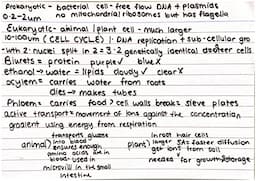 Prokaryotic - bacterial cell - free flow DNA + plasmids
0.2-2um no mitochondria/ribosomes but has flagella
Eukaryotic - animal / plant cell - much larger
10-100um (CELL CYCLE) 1 DNA replication + sub-cellular gro
-wth 2 nuclei split in 2 = 3-2 genetically identical daughter cells
Biurets = protein purple✓ blue X
Ethanol → water = lipids cloudy ✓ clear X
xylem = carries water from roots
dies → makes tubes
Phloem = carries food > cell walls break > sieve plates
active transport > movement of ions against the concentration
gradient using energy from respiration
animal) transports glucose into blood ensures enough amino acids are in blood - used in microvilli in the small intestine
plant) in root hair cells larger SA = faster diffusion get ions from soil needed for growth + storage